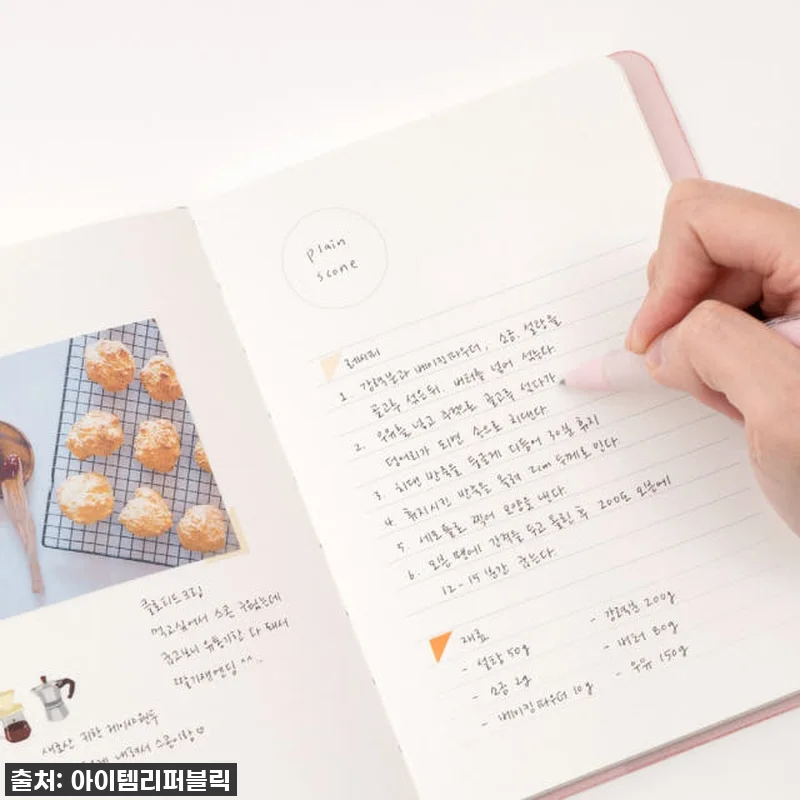 클로티드크림
먹고싶어서 스콘 구웠는데
유통기한 다 돼서
딸기잼엔딩 ^^..
새로산 귀한 게이샤원두
내려서 스콘이랑♡
plain
scone
레시피
1. 강력분과 베이킹파우더, 소금, 설탕을
골고루 섞은뒤, 버터를 넣어 섞는다.
2. 우유를 넣고 주걱으로 골고루 섞다가
덩어리가 되면 손으로 치댄다.
3. 치댄 반죽을 둥글게 다듬어 30분 휴지
4. 휴지시킨 반죽을 올려 2cm 두께로 민다.
5. 세르클로 찍어 모양을 낸다.
6. 오븐 팬에 간격을 두고 올린 후 200도 오븐에
12-15분간 굽는다.
재료
- 설탕 50g
- 소금 2g
- 베이킹파우더 10g
- 강력분 200g
- 버터 80g
- 우유 150g
출처: 아이템리퍼블릭